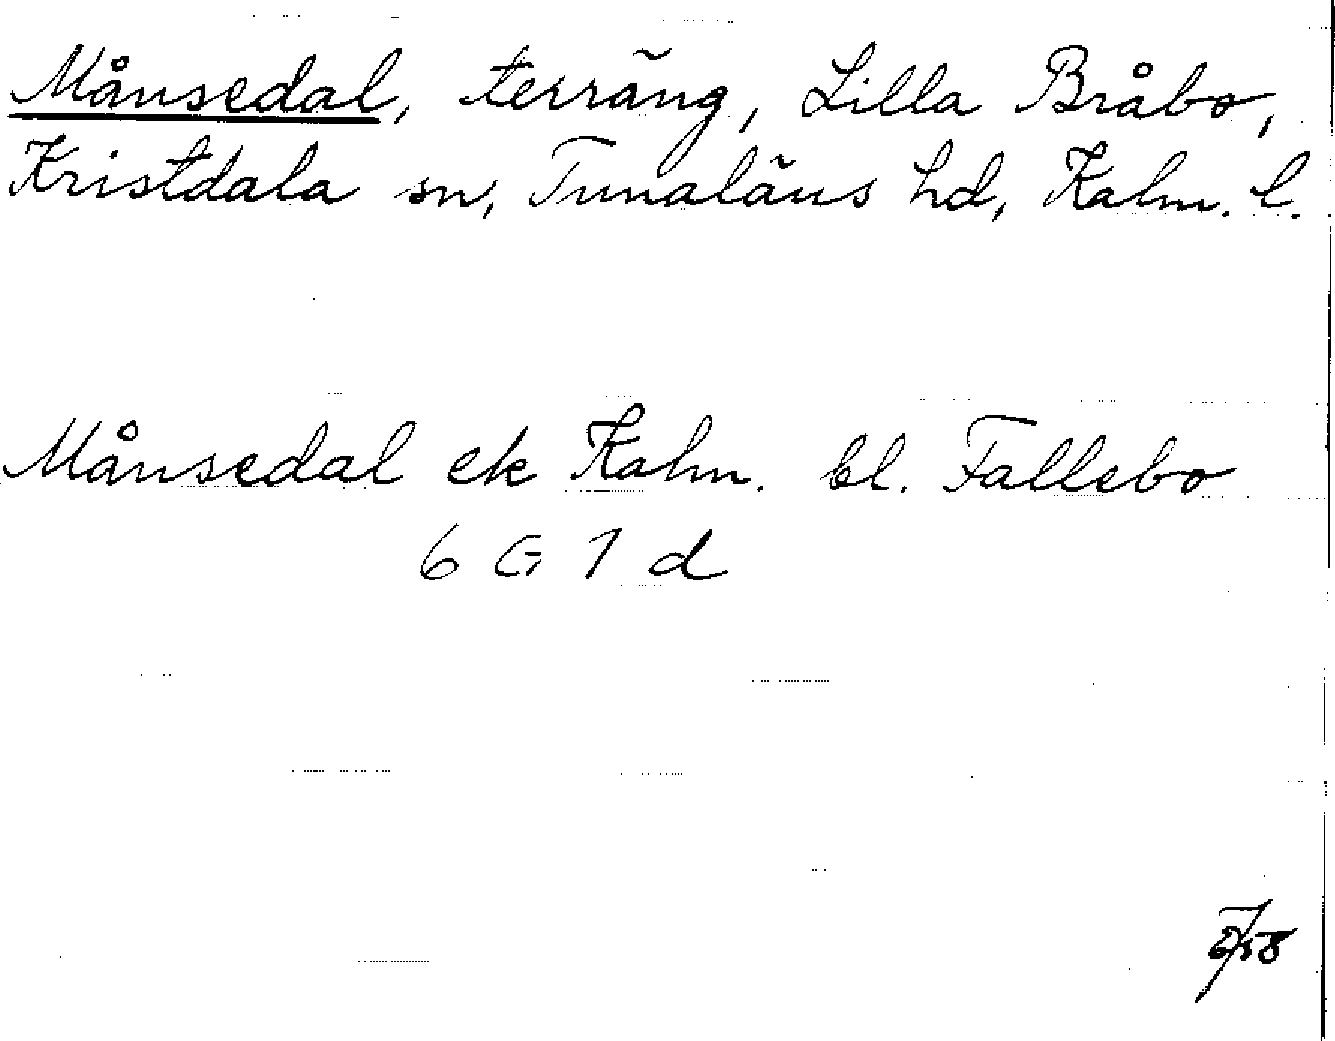 Månsedal, terräng, Lilla Bråbo,
Kristdala sn, Tunaläns hd, Kalm. l.
Månsedal ek Kalm. bl. Fallebo
6 G 1 d